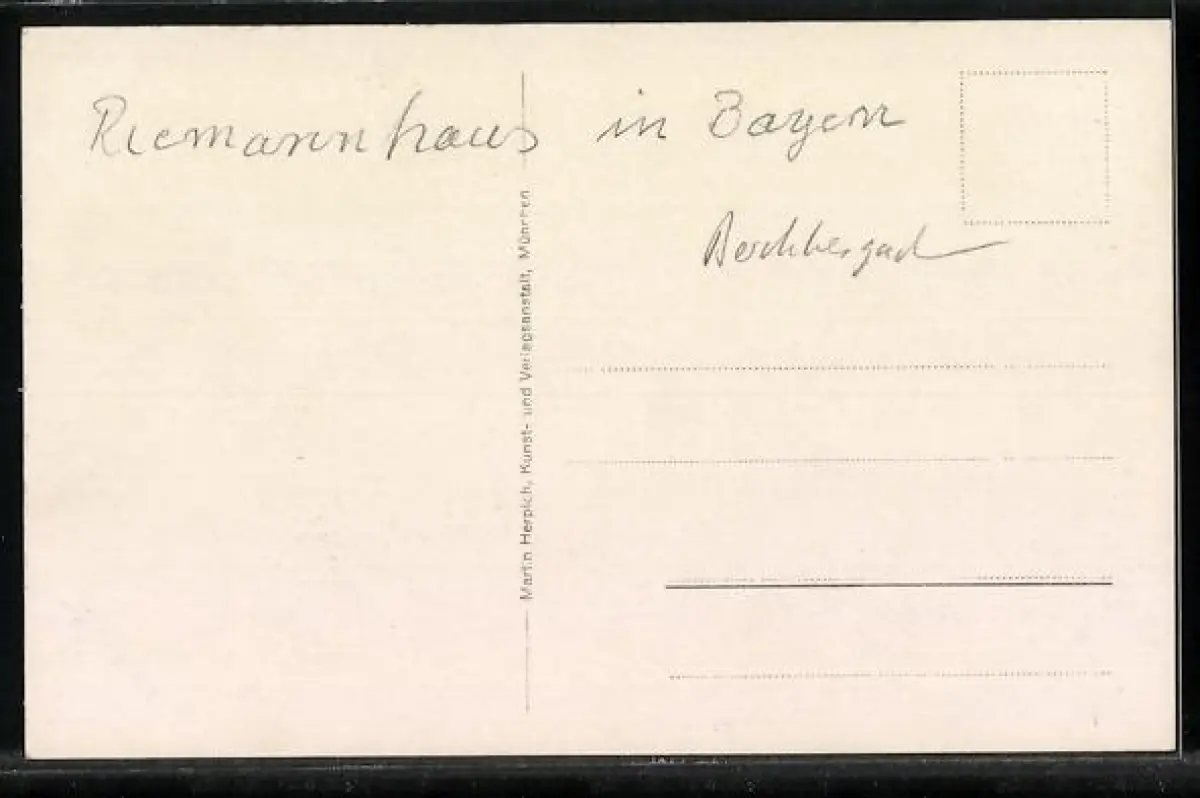 Riemannhaus in Bayern
Berchtesgad
Martin Herpich, Kunst- und Verlagsanstalt, München